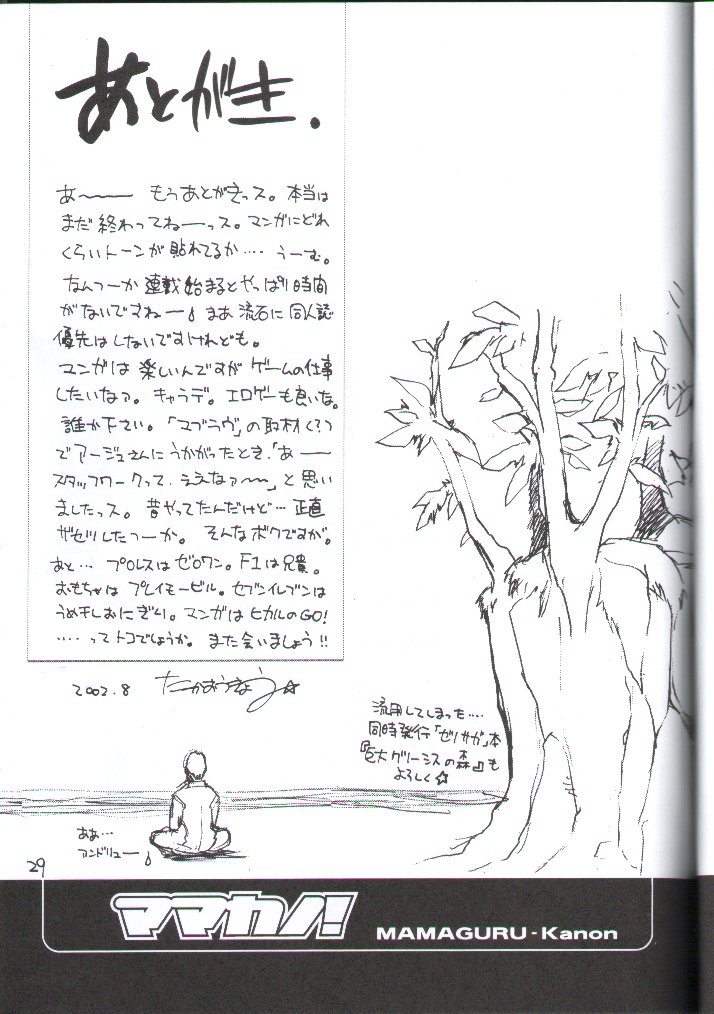 あとがき.
あ〜〜 もうあとがきっス。本当は
まだ終わってねーっス。マンガにどれ
くらいトーンが貼れてるか‥‥うーむ。
なんつーか連載始まるとやっぱり時間
がないですねー まあ流石に同人誌
優先はしないですけれども。
マンガは楽しいんですがゲームの仕事
したいなァ。キャラデ。エロゲーも良いな。
誰か下さい。「マブラヴ」の取材
でアージュさんにうかがったとき、「あー
スタッフワークって、ええなァ〜〜」と思い
ましたっス。昔やってたんだけど…正直
ザセツしたつーか。そんなボクですが。
あと… プロレスはゼロワン。F1は兄貴。
おもちゃはプレイモービル。セブンイレブンは
うめ干しおにぎり。マンガはヒカルのGO!
‥‥ってトコでしょうか。また会いましょう!!
2002.8
流用してしまった‥‥
同時発行「ゼリサガ」本
『巨大グリーシスの森』も
よろしく☆
ああ…
アンドリュー
29
ママカノ!
MAMAGURU-Kanon